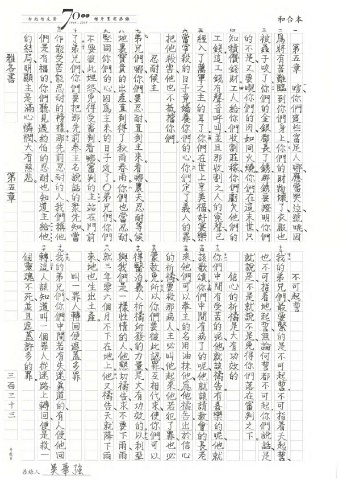 和合本
一 第五章 嗐你們這些富足人哪應當哭泣號咷因
為將有苦難臨到你們身上你們的財物壞了衣服也
被蟲子咬了你們的金銀都長了鏽那鏽要證明你們
的不是又要吃你們的肉如同火燒你們在這末世只
知積儹錢財工人給你們收割莊稼你們虧欠他們的
工錢這工錢有聲音呼叫並且那收割之人的冤聲已
經入了萬軍之主的耳了你們在世上享美福好宴樂
當宰殺的日子竟嬌養你們的心你們定了義人的罪
把他殺害他也不抵擋你們
忍耐候主
弟兄們哪你們要忍耐直到主來看哪農夫忍耐等候
地裏寶貴的出產直到得了秋雨春雨你們也當忍耐
堅固你們的心因為主來的日子近了弟兄們你們
不要彼此埋怨免得受審判看哪審判的主站在門前
了弟兄們你們要把那先前奉主名說話的眾先知當
作能受苦能忍耐的榜樣那先前忍耐的人我們稱他
們是有福的你們聽見過約伯的忍耐也知道主給他
的結局明顯主是滿心憐憫大有慈悲
不可起誓
我的弟兄們最要緊的是不可起誓不可指着天起誓
也不可指着地起誓無論何誓都不可起你們說話是
就說是不是就說不是免得你們落在審判之下
信心的祈禱是大有功效的
你們中間有受苦的呢他就該禱告有喜樂的呢他就
該歌頌你們中間有病了的呢他就該請教會的長老
來他們可以奉主的名用油抹他為他禱告出於信心
的祈禱要救那病人主必叫他起來他若犯了罪也必
蒙赦免所以你們要彼此認罪互相代求使你們可以
得醫治義人祈禱所發的力量是大有功效的以利亞
與我們是一樣性情的人他懇切禱告求不要下雨雨
就三年零六個月不下在地上他又禱告天就降下雨
來地也生出土產
叫一罪人轉回便遮蓋多罪
我的弟兄們你們中間若有失迷真道的有人使他回
轉這人該知道叫一個罪人從迷路上轉回便是救一
個靈魂不死並且遮蓋許多的罪
雅各書
第五章
三百三十三